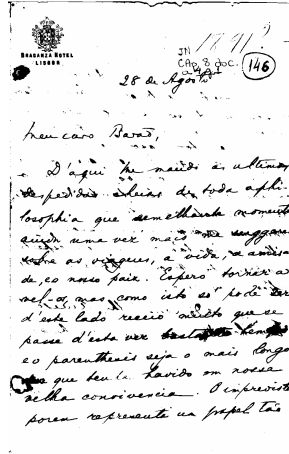 BRAGANZA HOTEL
LISBOA
JN 1891
CAp. 8 doc.
146
28 de Agosto
Meu caro Barão,
D'aqui lhe mando as ultimas
despedidas cheias de toda a phi-
losophia que semelhante momento
uma vez mais
sobre as viagens, a vida, a amisa-
de, e o nosso paiz. Espero tornar a
vel-o, mas como isto só póde ser
d'este lado receio muito que se
passe d'esta vez bastante tempo
e o parenthesis seja o mais longo
que tenha havido em nossa
velha convivencia. O imprevisto
porem representa um papel tão